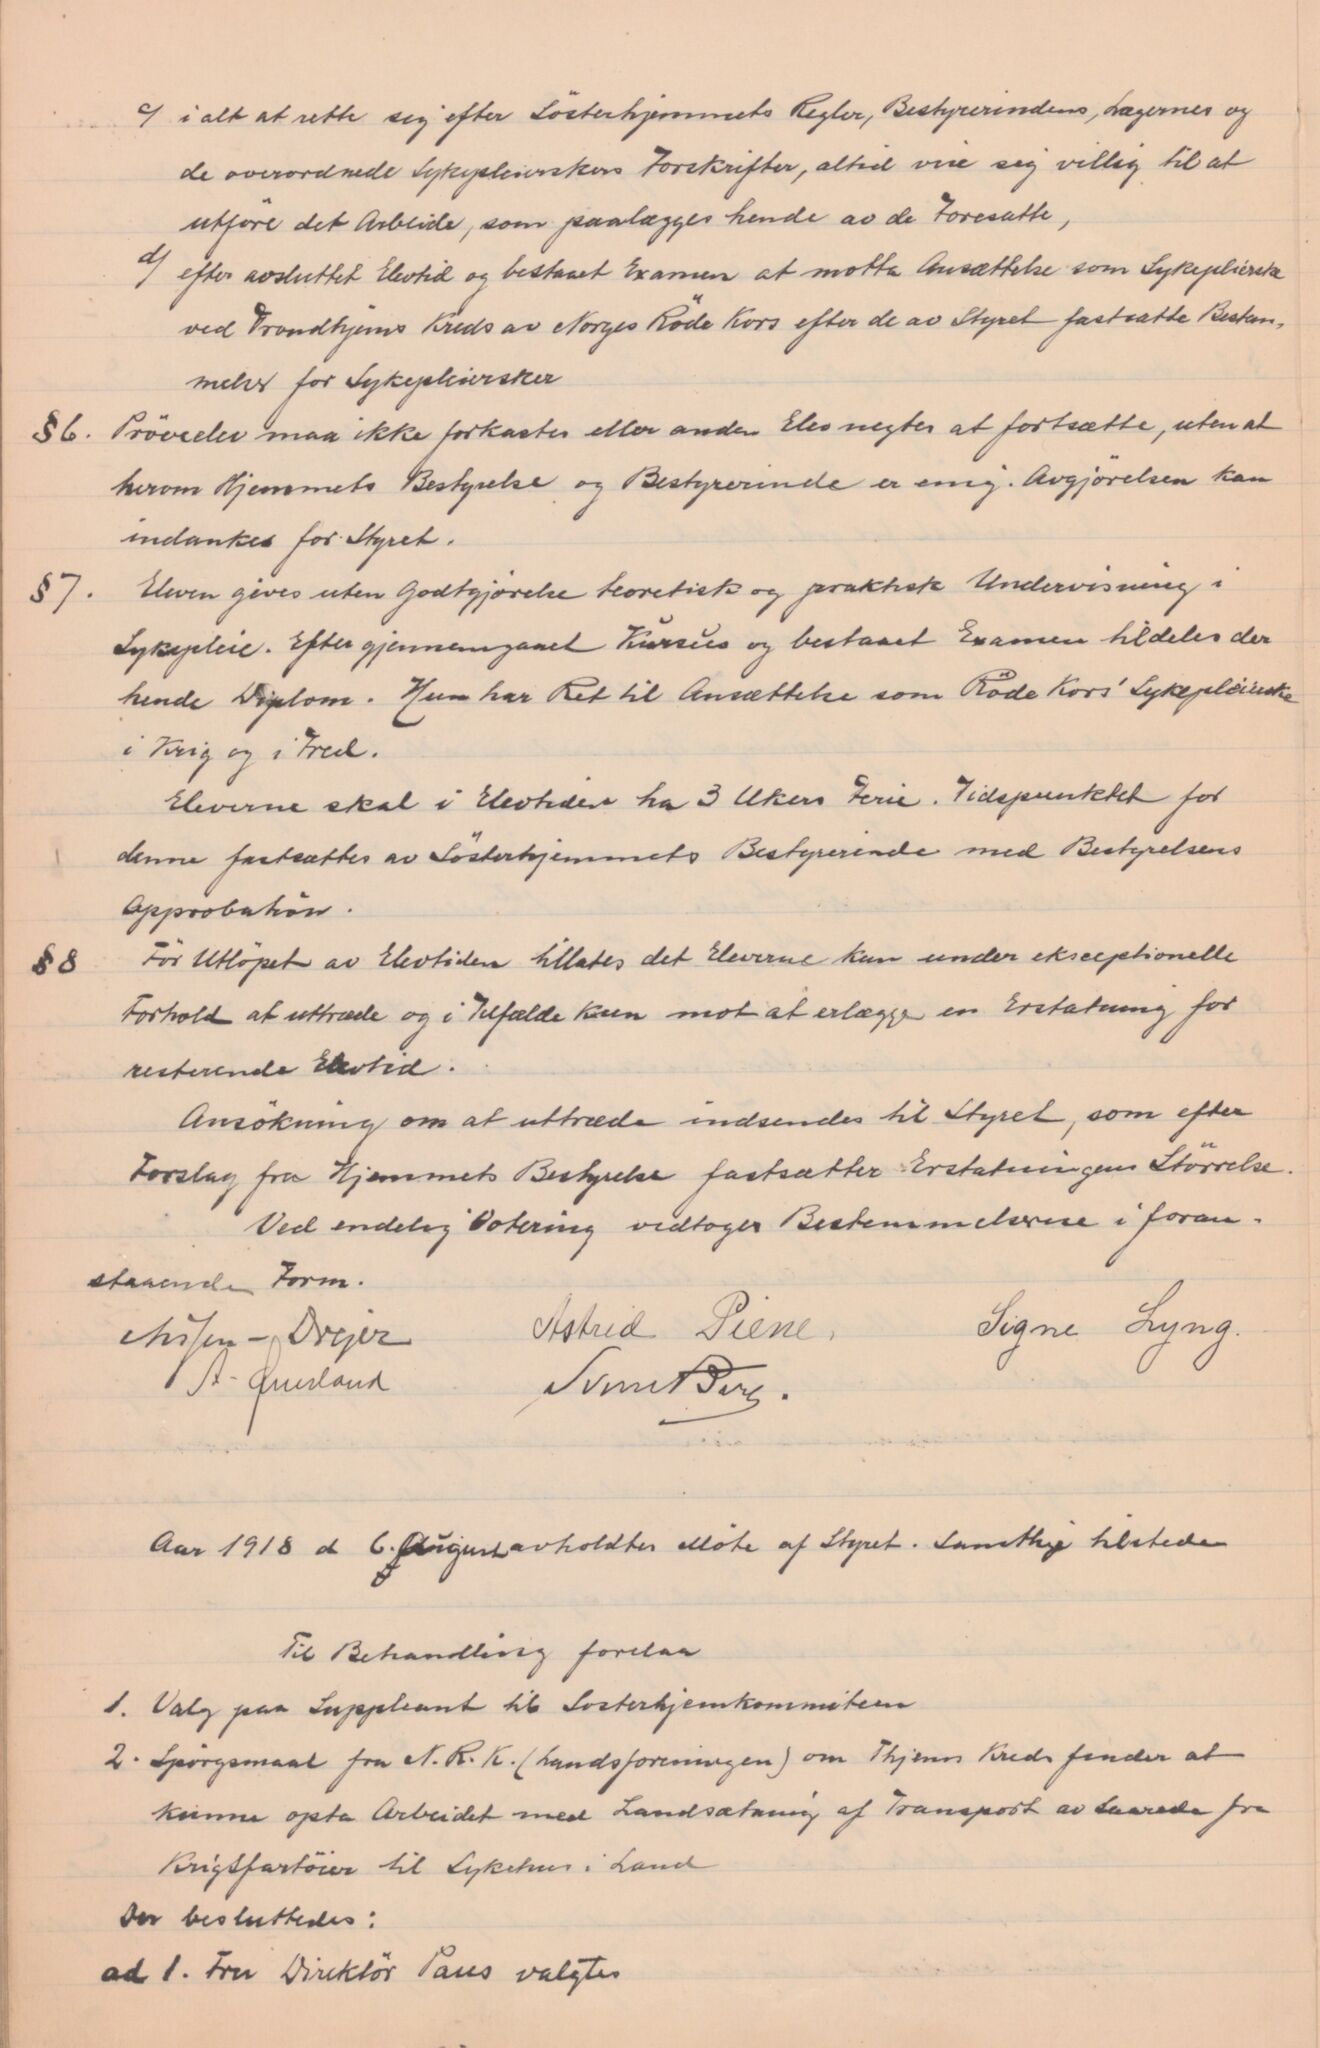 c/ i alt at rette sig efter Sösterhjemmets Regler, Bestyrerindens, Lægernes og
de overordnede Sykepleierskers Forskrifter, altid vise sig villig til at
utföre det Arbeide, som paalægges hende av de Foresatte,
d/ efter avsluttet Elevtid og bestaaet Examen at motta Ansættelse som Sykepleierske
ved Trondhjems Kreds av Norges Röde Kors efter de av Styret fastsatte Bestem-
melser for Sykepleiersker
§ 6. Pröveelev maa ikke forkastes eller anden Elev negtes at fortsætte, uten at
herom Hjemmets Bestyrelse og Bestyrerinde er enig. Avgjörelsen kan
indankes for Styret.
§ 7. Eleven gives uten Godtgjörelse teoretisk og praktisk Undervisning i
Sykepleie. Efter gjennemgaaet Kursus og bestaaet Examen tildeles der
hende Diplom. Hun har Ret til Ansættelse som Röde Kors' Sykepleierske
i Krig og i Fred.
Eleverne skal i Elevtiden ha 3 Ukers Ferie. Tidspunktet for
denne fastsættes av Sösterhjemmets Bestyrerinde med Bestyrelsens
Approbation.
§ 8 För Utlöpet av Elevtiden tillates det Eleverne kun under eksceptionelle
Forhold at uttræde og i Tilfælde kun mot at erlægge en Erstatning for
resterende Elevtid.
Ansökning om at uttræde indsendes til Styret, som efter
Forslag fra Hjemmets Bestyrelse fastsætter Erstatningens Störrelse.
Ved endelig Votering vedtoges Bestemmelserne i foran-
staaende Form.
Drejer Astrid Piene. Signe Lyng.
A. Berg.
Aar 1918 d 6. August avholdtes Möte af Styret. Samtlige tilstede
Til Behandling forelaa
1. Valg paa Suppleant til Sosterhjemkommiteen
2. Spörgsmaal fra N. R. K. (Landsforeningen) om Thjems Kreds finder at
kunne opta Arbeidet med Landsætning af Transport av saarede fra
Krigsfartöier til Sykehus i Land
Der besluttedes:
ad 1. Fru Direktör Paus valgtes